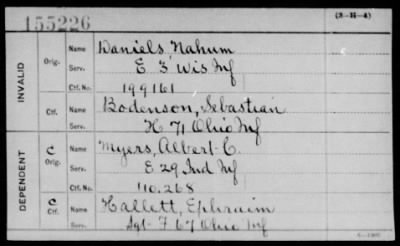 155226
(3-H-4)
INVALID
Orig.
Name Daniels Nahum
Serv. E 3' Wis Inf
Ctf. No. 199161
Ctf.
Name Bodenson, Sebastian
Serv. H 71 Ohio Inf
DEPENDENT
C Orig.
Name Myers, Albert C.
Serv. E 29 Ind Inf
Ctf. No. 110.268
C Ctf.
Name Hallett, Ephraim
Serv. Sgt- F 67 Ohio Inf